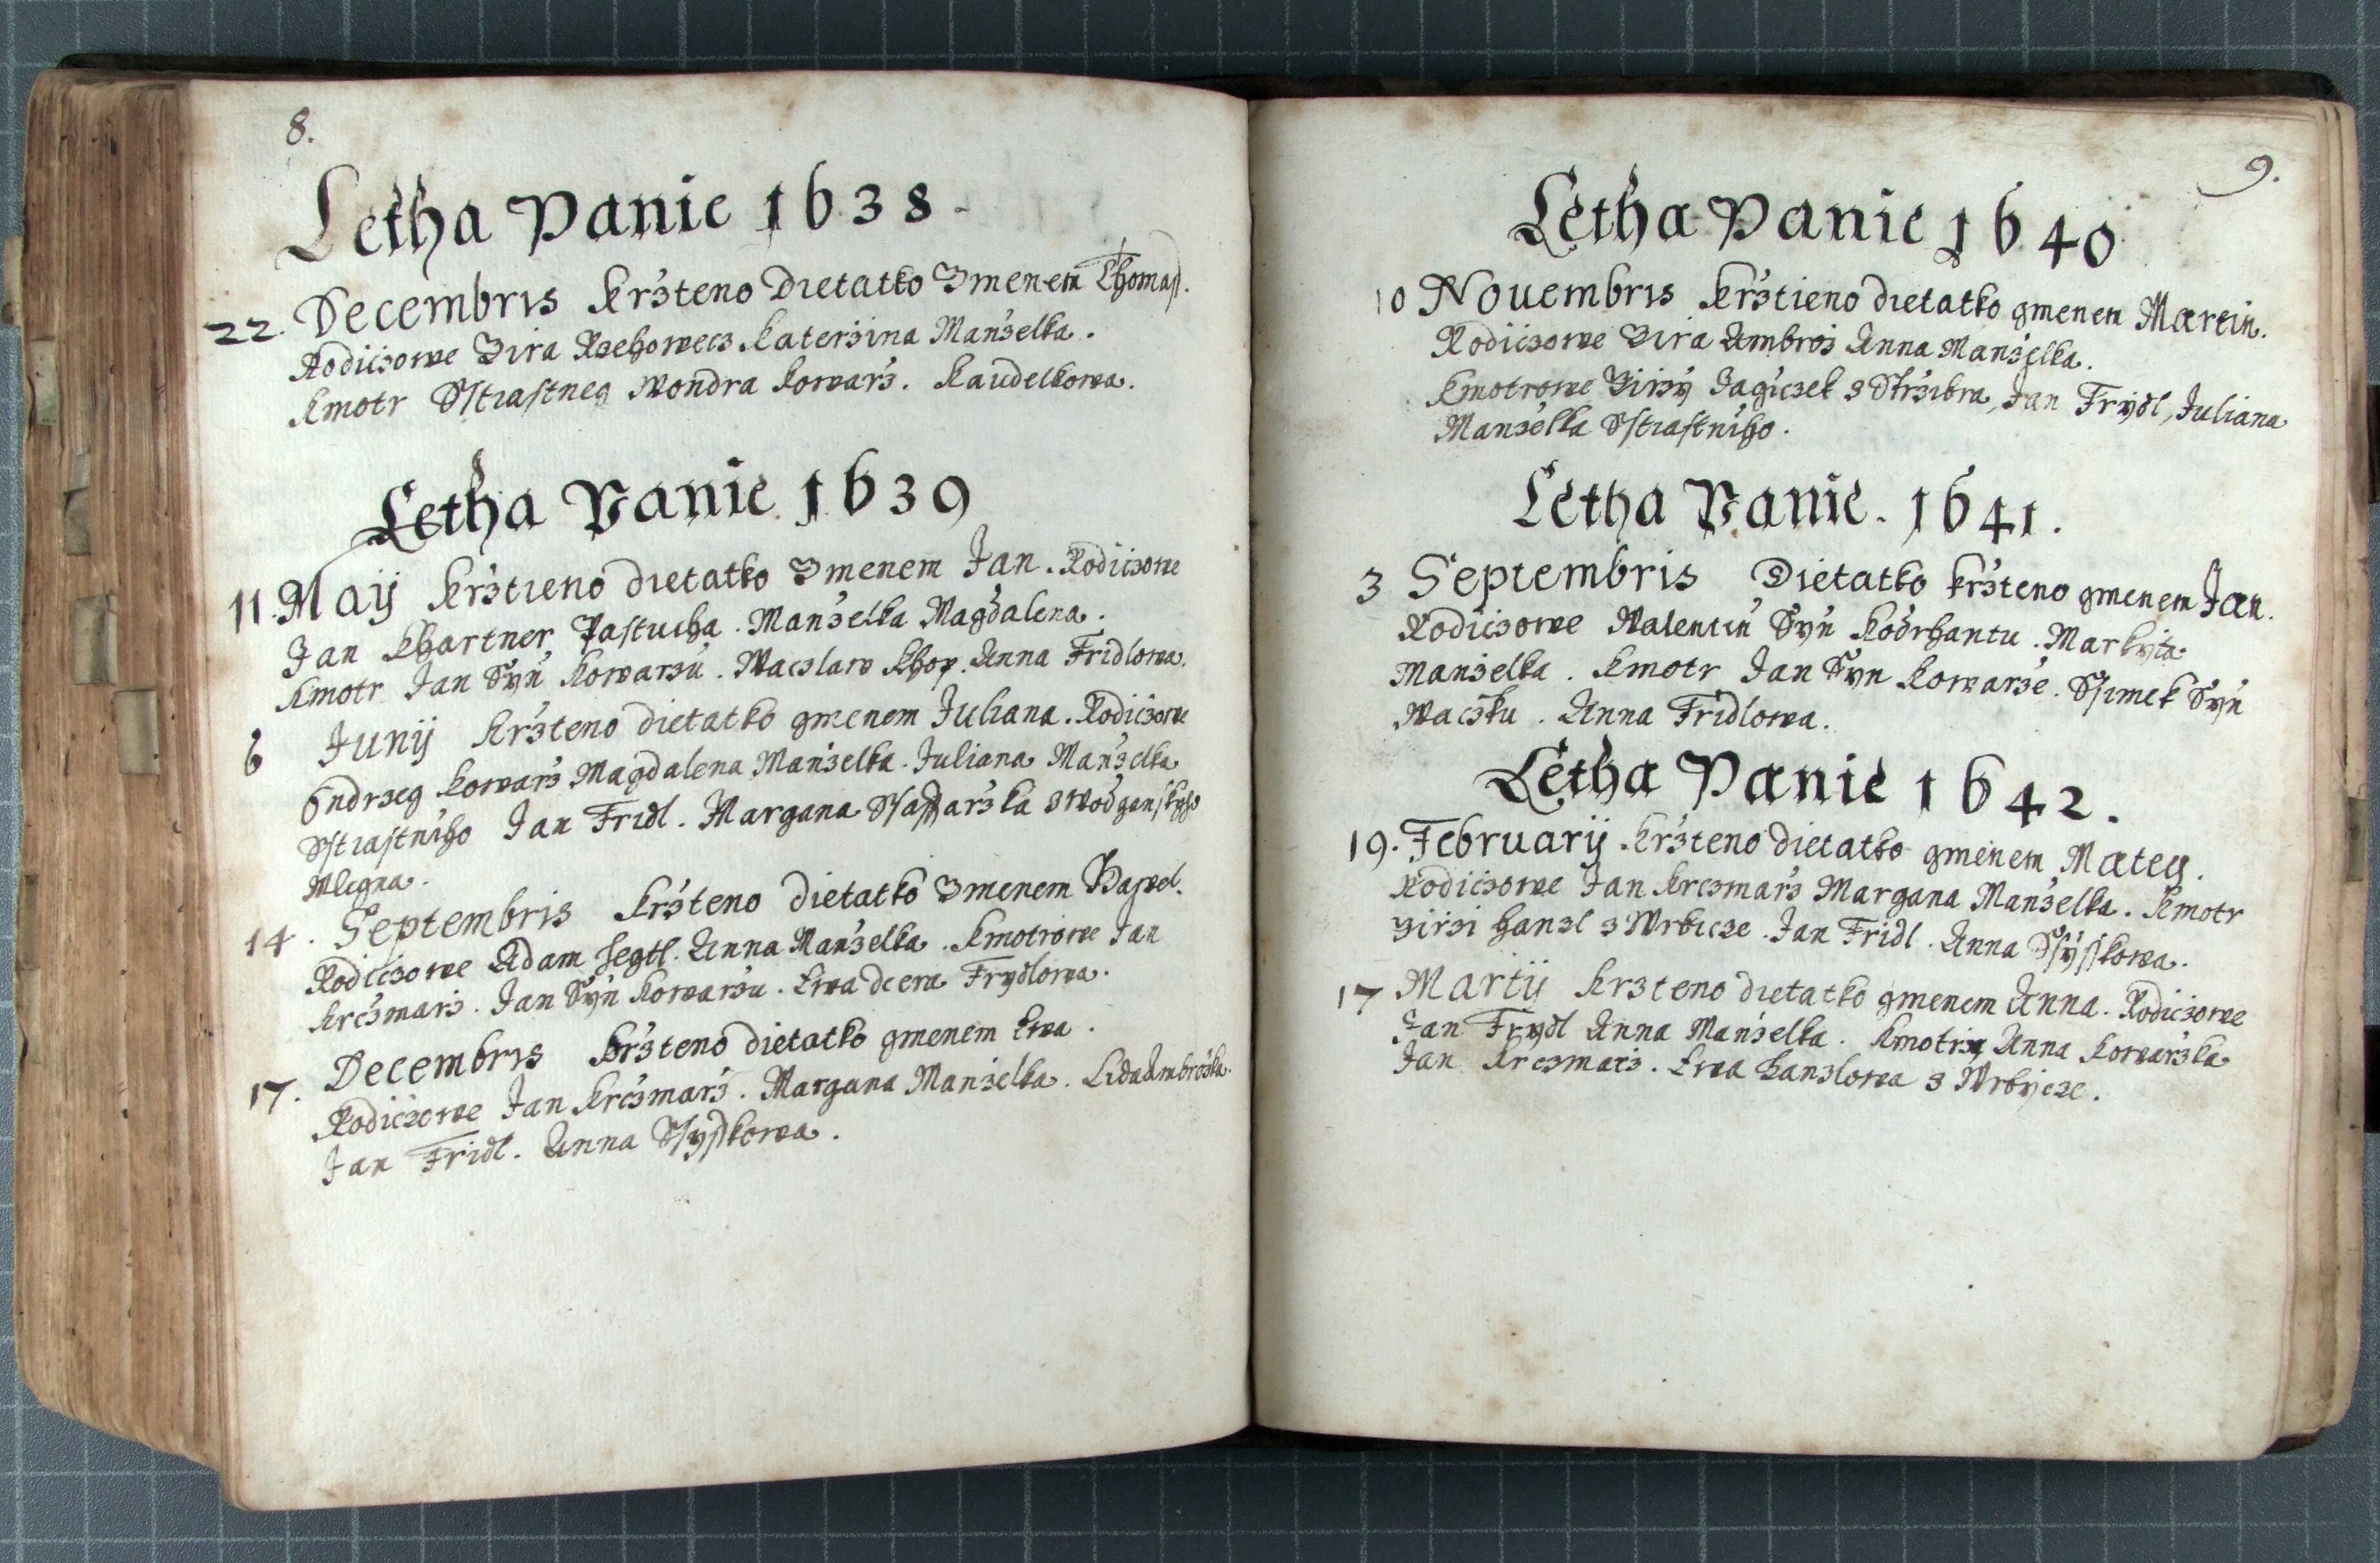 8.
Letha Panie 1638.
22. Decembris Krzteno Dietatko Imenem Thomass.
Rodiczowe Jira Rzehowecz Katerzina Manzelka.
Kmotr Sstiastneg Wondra Kowarz. Kaudelkowa.
Letha Panie 1639
11. Maij Krztieno dietatko Imenem Jan. Rodiczowe
Jan Khartner Pastucha. Manzelka Magdalena.
Kmotr Jan Syn Kowarzu. Waczlaw Khop. Anna Fridlowa.
6 Junij Krzteno dietatko gmenem Juliana. Rodiczowe
Ondrzeg Kowarz Magdalena Manzelka. Juliana Manzelka
Sstiastniho Jan Fridl. Margana Ssaffarzka
Mlegna.
14. Septembris Krzteno dietatko Imenem Hawel.
Rodiczowe Adam Segtl. Anna Manzelka. Kmotrowe Jan
Krczmarz. Jan Syn Kowarzu. Ewa dcera Frydlowa.
17. Decembris Krzteno dietatko gmenem Ewa.
Rodiczowe Jan Krczmarz. Margana Manzelka. Lida Ambrozka.
Jan Fridl. Anna Ssysskowa.
9.
Letha Panie 1640
10 Nouembris Krztieno dietatko gmenem Martin.
Rodiczowe Jira Ambroz Anna Manzelka.
Kmotrowe Jirzy Jagiczek z Strzibra, Jan Frydl, Juliana
Manzelka Sstiastniho.
Letha Panie. 1641.
3 Septembris Dietatko krzteno gmenem Jan.
Rodiczowe Walentin Syn Kodrhantu. Markyta
Manzelka. Kmotr Jan Syn Kowarze. Ssimek Syn
Waczku. Anna Fridlowa.
Letha Panie 1642.
19. Februarij Krzteno dietatko gmenem Mateg.
Rodiczowe Jan Krczmarz Margana Manzelka. Kmotr
Jirzi Hanzl z Wrbicze. Jan Fridl. Anna Ssysskowa.
17 Martij Krzteno dietatko gmenem Anna. Rodiczowe
Jan Frydl Anna Manzelka. Kmotrzy Anna Kowarzka
Jan Krczmarz. Ewa Hanzlowa z Wrbycze.